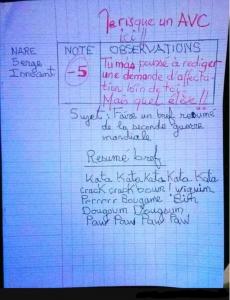 Je risque un AVC
ici !!
NARE
Serge
Innocent
NOTE
-5
OBSERVATIONS
Tu m'as poussé à rediger
une demande d'affecta-
tion loin de toi.
Mais quel élève !!
Sujet : Faire un bref resumé
de la seconde guerre
mondiale
Resumé bref
Kata Kata Kata Kata Kata
crack crack boum
Perrrrr Bougame
Dougoum Dougoum
Paw Paw Paw Paw